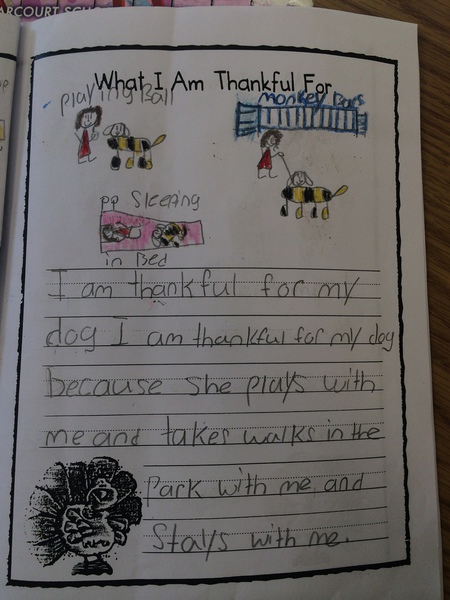 ARCOURT SCH
What I Am Thankful For
playing Ball
Monkey Bars
pp Sleeping
in Bed
I am thankful for my
dog I am thankful for my dog
because she plays with
me and takes walks in the
Park with me and
Stays with me.